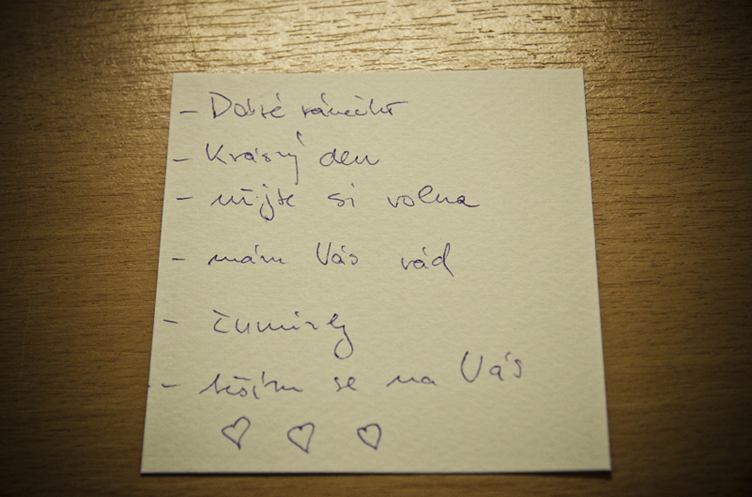 - Dobré ránečko
- Krásný den
- užijte si volna
- mám Vás rád
- těším se na Vás
♡ ♡ ♡